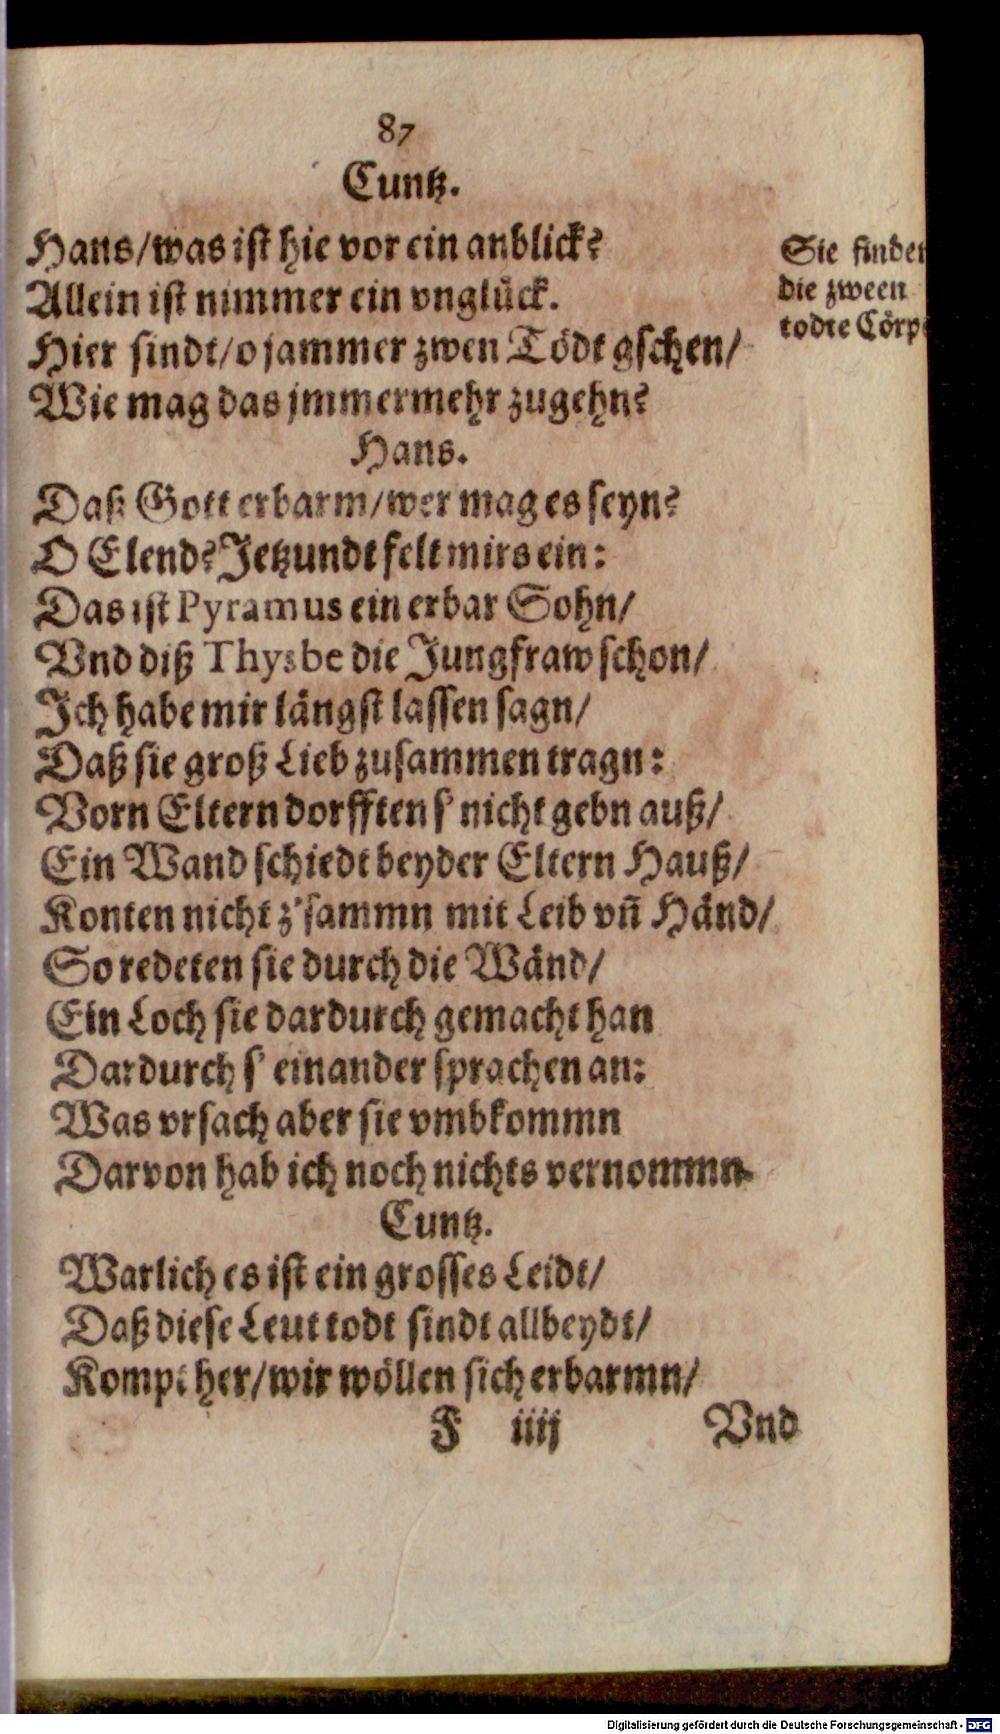 87
Cuntz.
Hans/was ist hie vor ein anblick?
Allein ist nimmer ein vnglück.
Hier sindt/o jammer zwen Tödt gschen/
Wie mag das jmmermehr zugehn?
Sie finden
die zween
todte Cörp
Hans.
Daß Gott erbarm/wer mag es seyn?
O Elend? Jetzundt felt mirs ein:
Das ist Pyramus ein erbar Sohn/
Vnd diß Thysbe die Jungfraw schon/
Ich habe mir längst lassen sagn/
Daß sie groß Lieb zusammen tragn:
Vorn Eltern dorfften s' nicht gebn auß/
Ein Wand schiedt beyder Eltern Hauß/
Konten nicht z'sammn mit Leib vñ Händ/
So redeten sie durch die Wänd/
Ein Loch sie dardurch gemacht han
Dardurch s' einander sprachen an:
Was vrsach aber sie vmbkommn
Darvon hab ich noch nichts vernommn.
Cuntz.
Warlich es ist ein grosses Leidt/
Daß diese Leut todt sindt allbeydt/
Kompt her/wir wöllen sich erbarmn/
F iiij Vnd
Digitalisierung gefördert durch die Deutsche Forschungsgemeinschaft - DFG